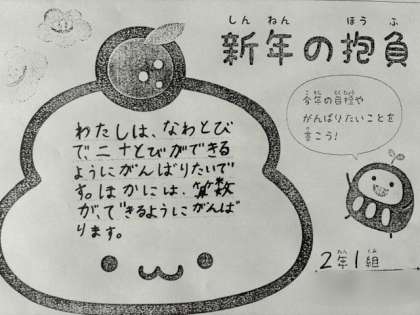 新年の抱負
しんねん ほうふ
今年の目標や
がんばりたいことを
書こう!
わたしは、なわとび
で、二十とびができる
ようにがんばりたいで
す。ほかには、算数
が、できるようにがんば
ります。
2年1組